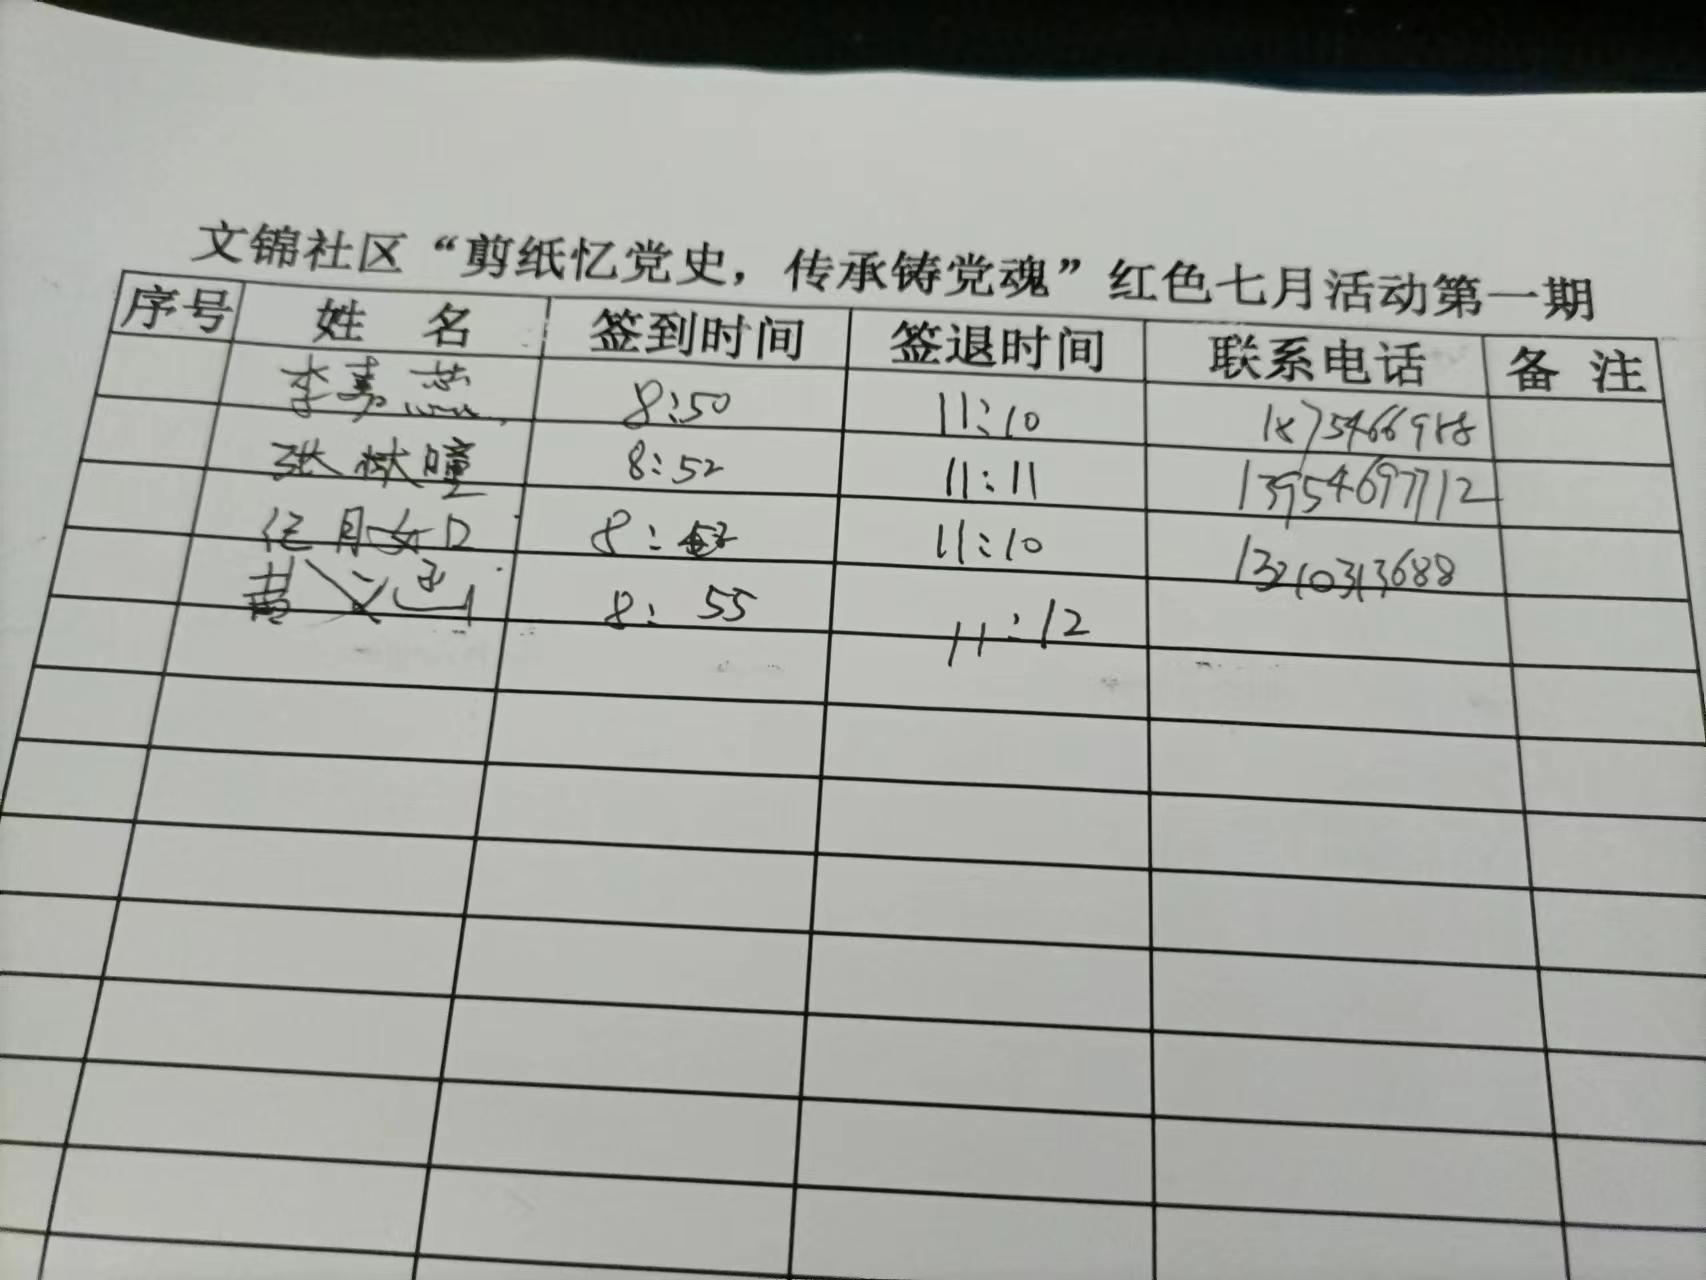 文锦社区“剪纸忆党史，传承铸党魂”红色七月活动第一期
序号 姓 名 签到时间 签退时间 联系电话 备 注
李嘉燕 8:50 11:10
张樾瞳 8:52 11:11 13954697712
任月如 8: 11:10 13210313688
黄 8:55 11:12